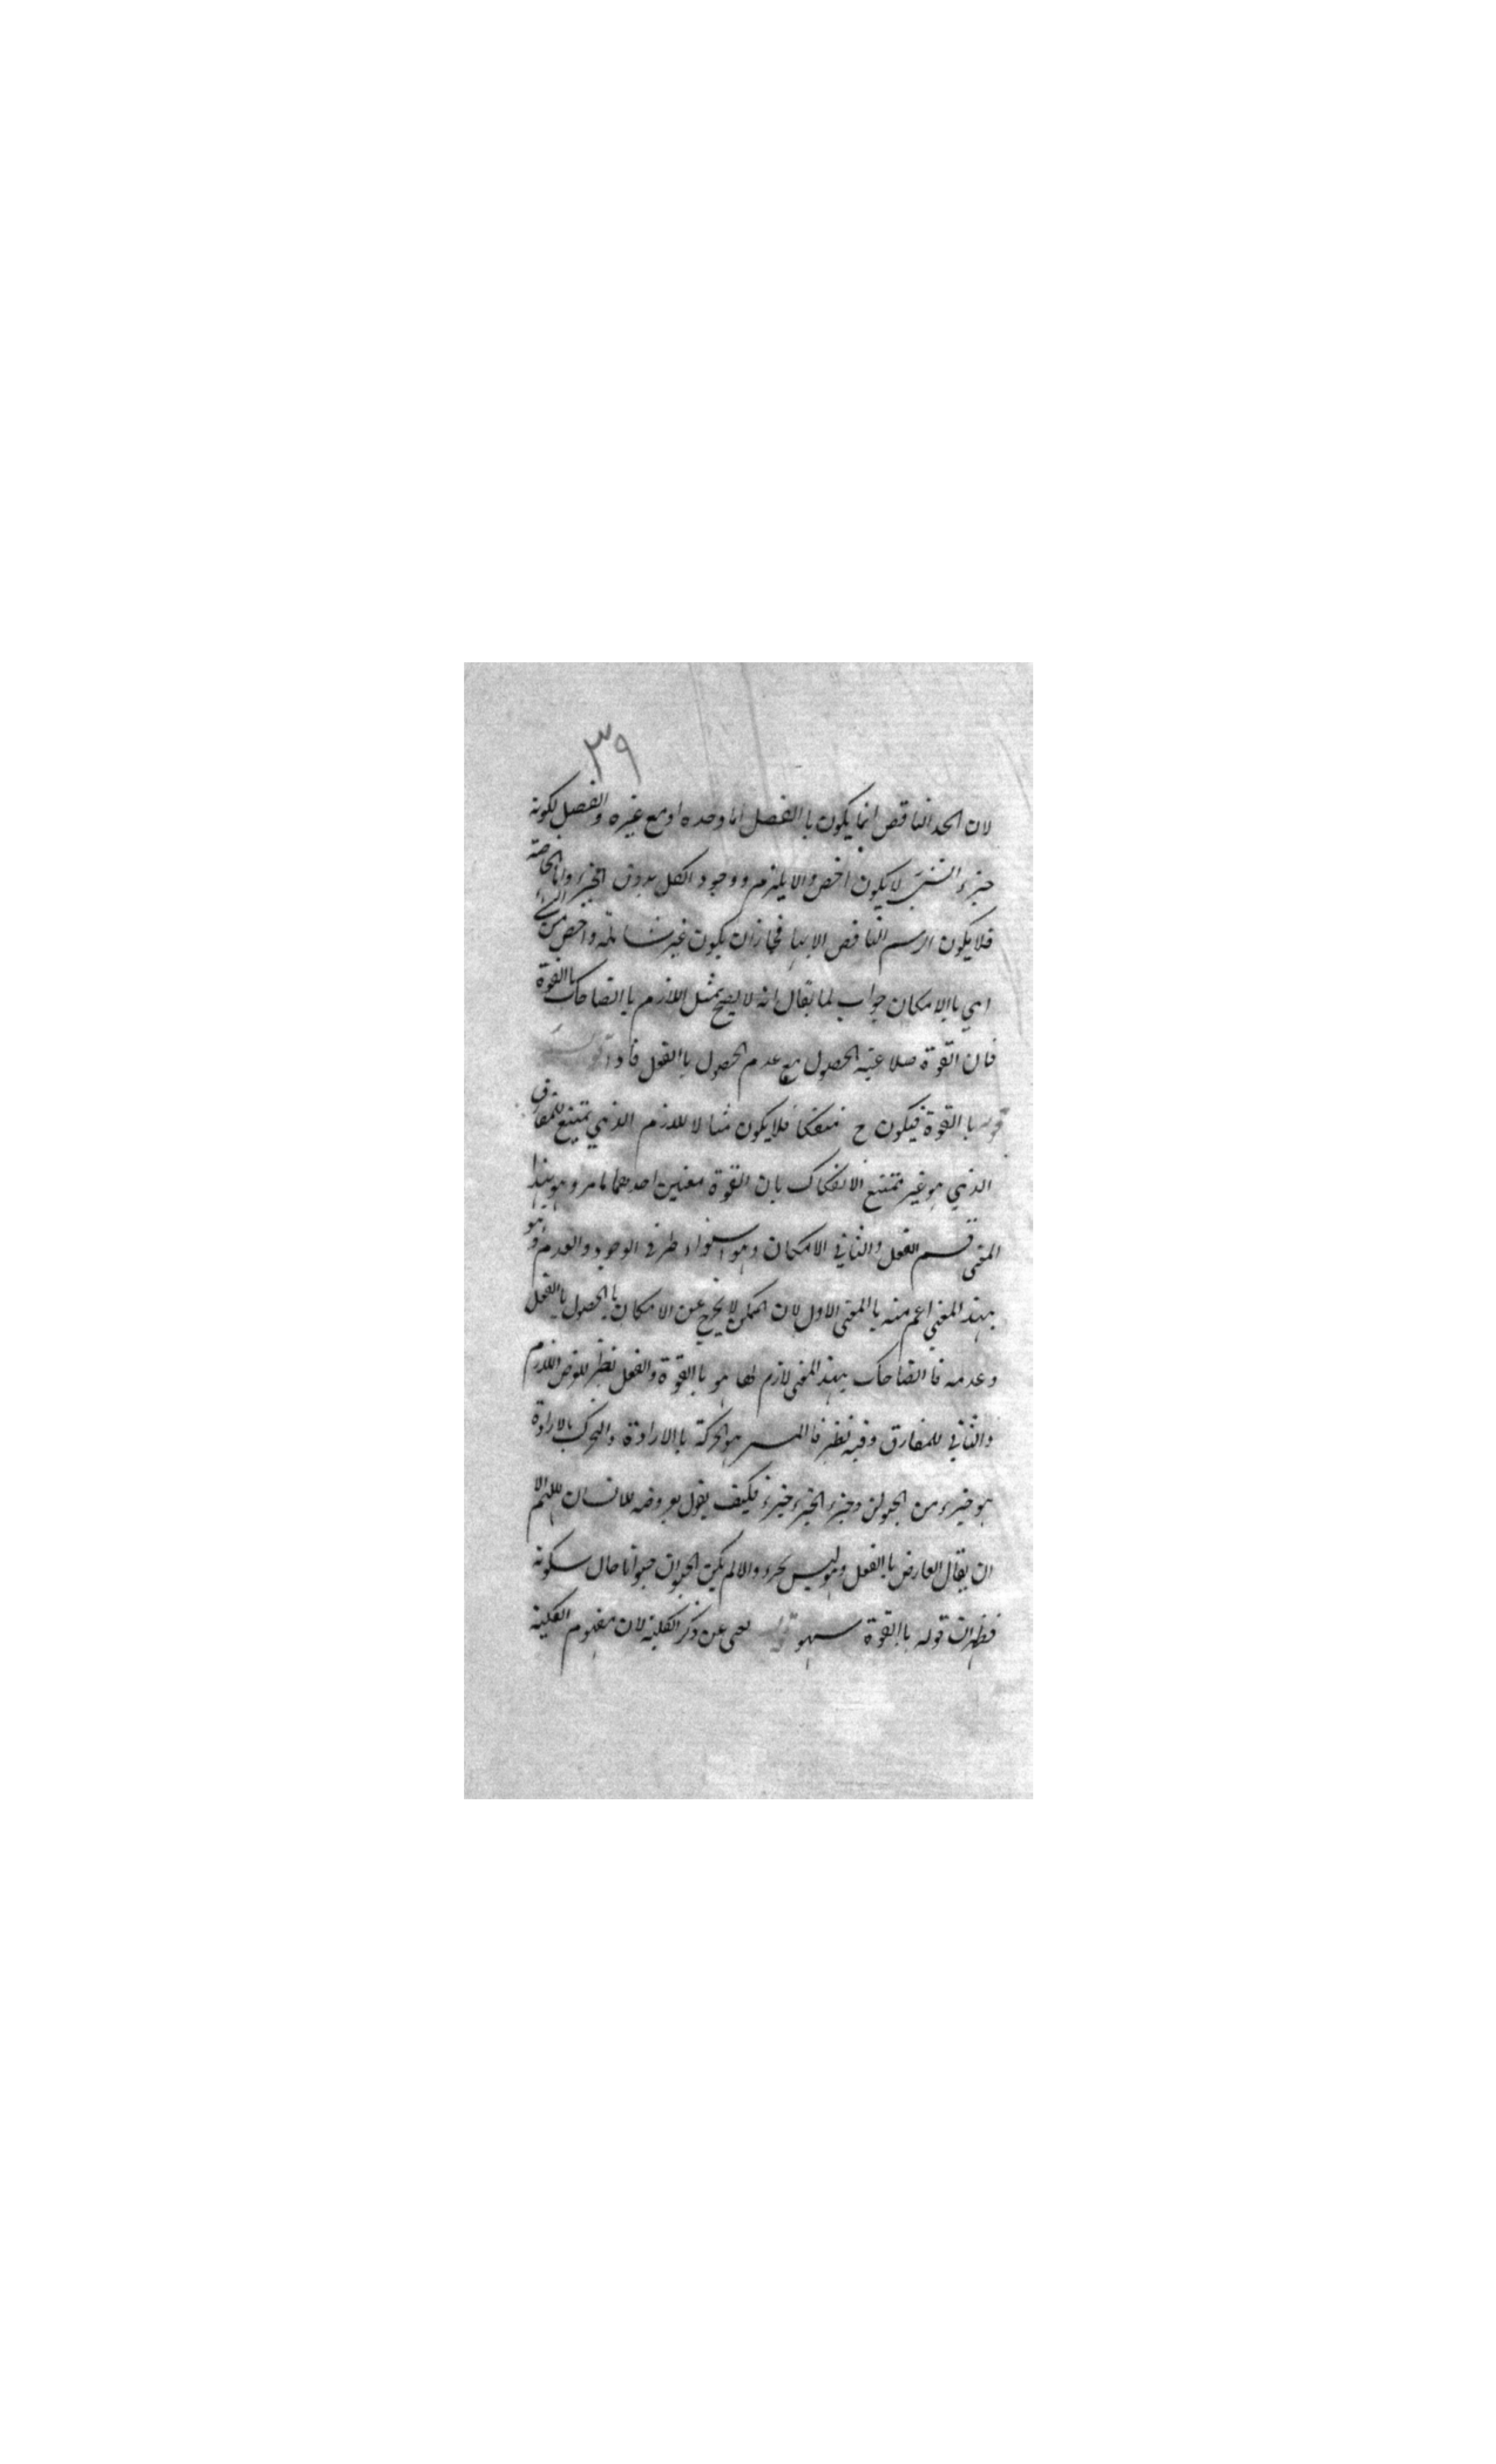 ٣٩
لان الحد الناقص انما يكون باالفصل اما وحده او مع غيره والفصل لكونه
جزء الشئ لا يكون اخص والا يلزم ووجود الكل بدون الجزء واما الخاصة
فلا يكون الرسم الناقص الا بها فجازان يكون غير شاملة واخص من الشئ
اي باالامكان جواب لما يقال انه لا يصح تمثيل اللازم باالضاحك باالقوة
فان القوة صلاحية الحصول مع عدم الحصول باالفعل فاذا
قوله باالقوة فيكون ح منفكا فلا يكون مثالا للازم الذي يمتنع للمفارق
الذي هو غير ممتنع الانفكاك بان القوة معنين احدهما ما مر وهو بهذا
المعنى قسم الفعل والثاني الامكان وهو استواء طرفي الوجود والعدم وهو
بهذ المعنى اعم منه باالمعنى الاول لان الممكن لا يخرج عن الامكان باالحصول باالفعل
وعدمه فاالضاحك بهذ المعنى لازم لها هو باالقوة والفعل نظر للعرض اللازم
والثاني للمفارق وفيه نظر فا هو الحركة باالارادة والتحرك بالارادة
هو جزء من الحيوان وجزء الجزء جزء فكيف يقول بعروضه للانسان اللهم الا
ان يقال العارض باالفعل وهو ليس بجزء والا لم يكن الحيوان حيوانا حال سكونه
فظهران قوله باالقوة سهو لغى عن ذكر الكلية لان مفهوم الكلية